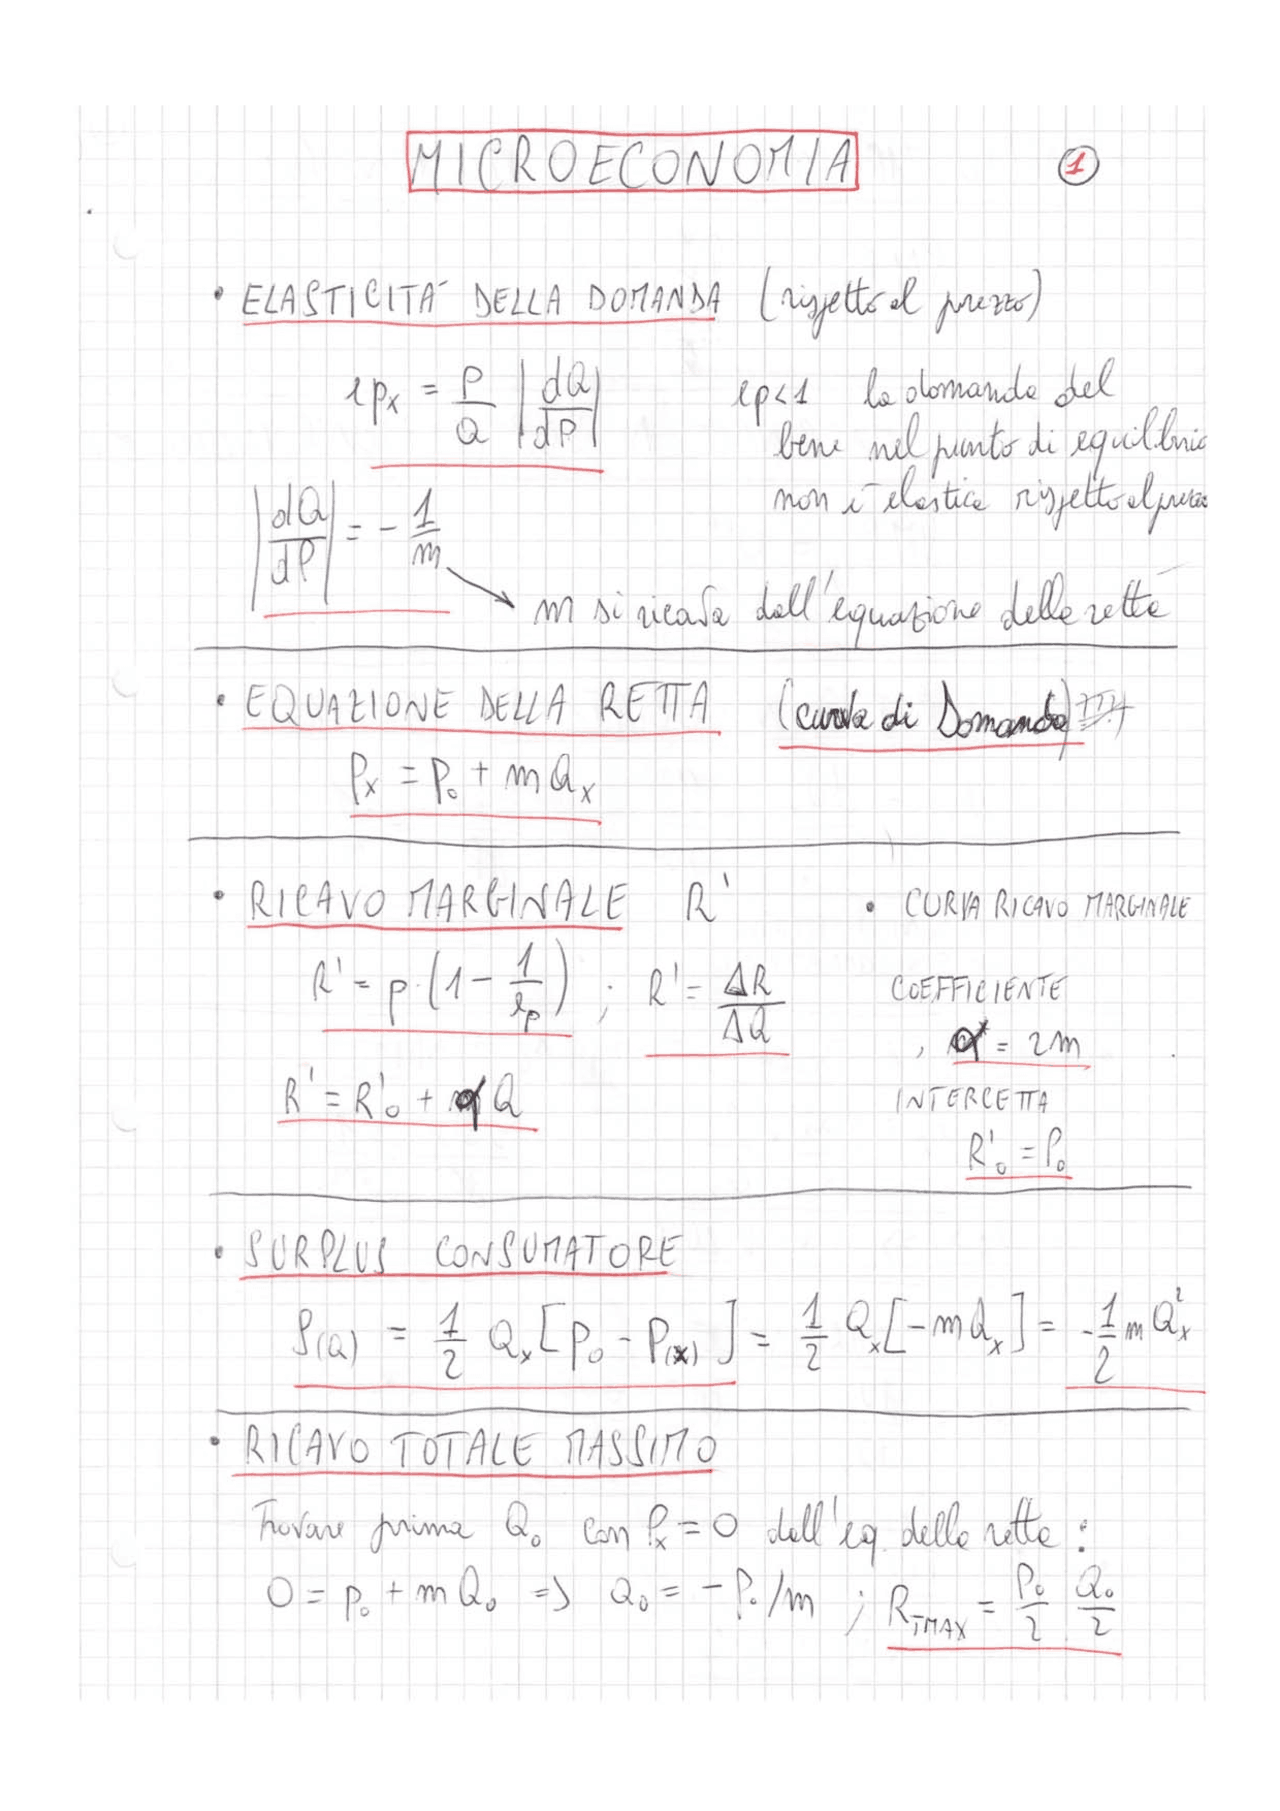 MICROECONOMIA
1
• ELASTICITÀ DELLA DOMANDA (rispetto al prezzo)
epₓ = P/Q |dQ/dP|
ep<1 la domanda del
bene nel punto di equilibrio
non è elastica rispetto al prezzo
|dQ/dP| = - 1/m
m si ricava dall'equazione della retta
• EQUAZIONE DELLA RETTA (curva di Domanda)
Pₓ = P₀ + mQₓ
• RICAVO MARGINALE R'
R' = p·(1 - 1/ep) ; R' = ΔR/ΔQ
R' = R'₀ + αQ
• CURVA RICAVO MARGINALE
COEFFICIENTE
, α = 2m
INTERCETTA
R'₀ = P₀
• SURPLUS CONSUMATORE
S(Q) = 1/2 Qₓ [P₀ - P(x)] = 1/2 Qₓ[-mQₓ] = -1/2 m Qₓ²
• RICAVO TOTALE MASSIMO
Trovare prima Q₀ con Pₓ = 0 dall'eq. della retta :
0 = P₀ + mQ₀ => Q₀ = - P₀/m ; R_TMAX = P₀/2 Q₀/2